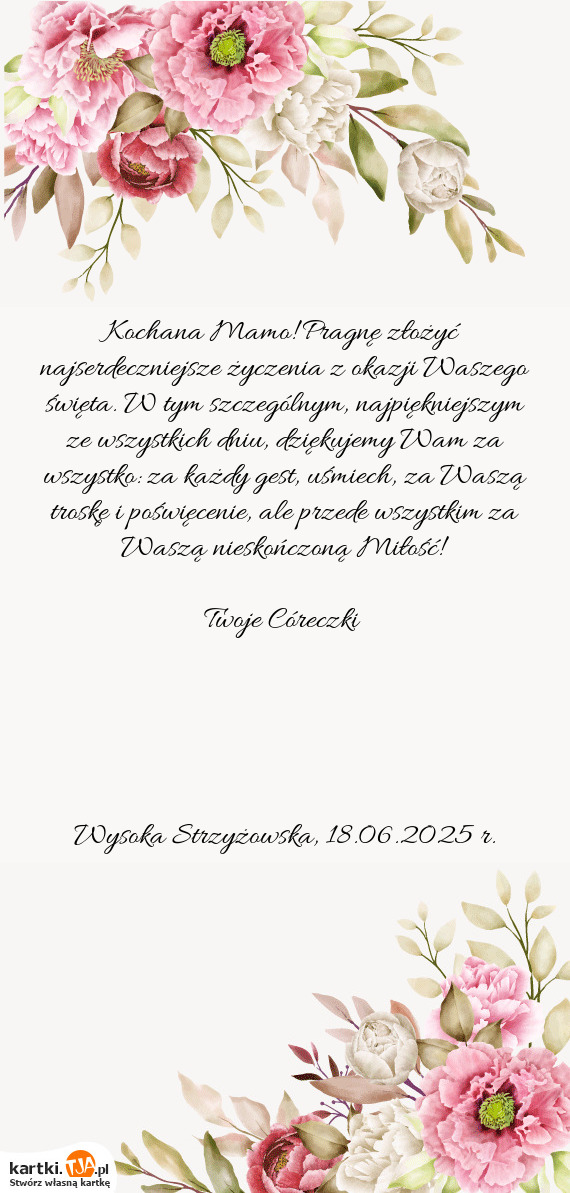 Kochana Mamo! Pragnę złożyć
najserdeczniejsze życzenia z okazji Waszego
święta. W tym szczególnym, najpiękniejszym
ze wszystkich dniu, dziękujemy Wam za
wszystko: za każdy gest, uśmiech, za Waszą
troskę i poświęcenie, ale przede wszystkim za
Waszą nieskończoną Miłość!
Twoje Córeczki
Wysoka Strzyżowska, 18.06.2025 r.
kartki.TJA.pl
Stwórz własną kartkę